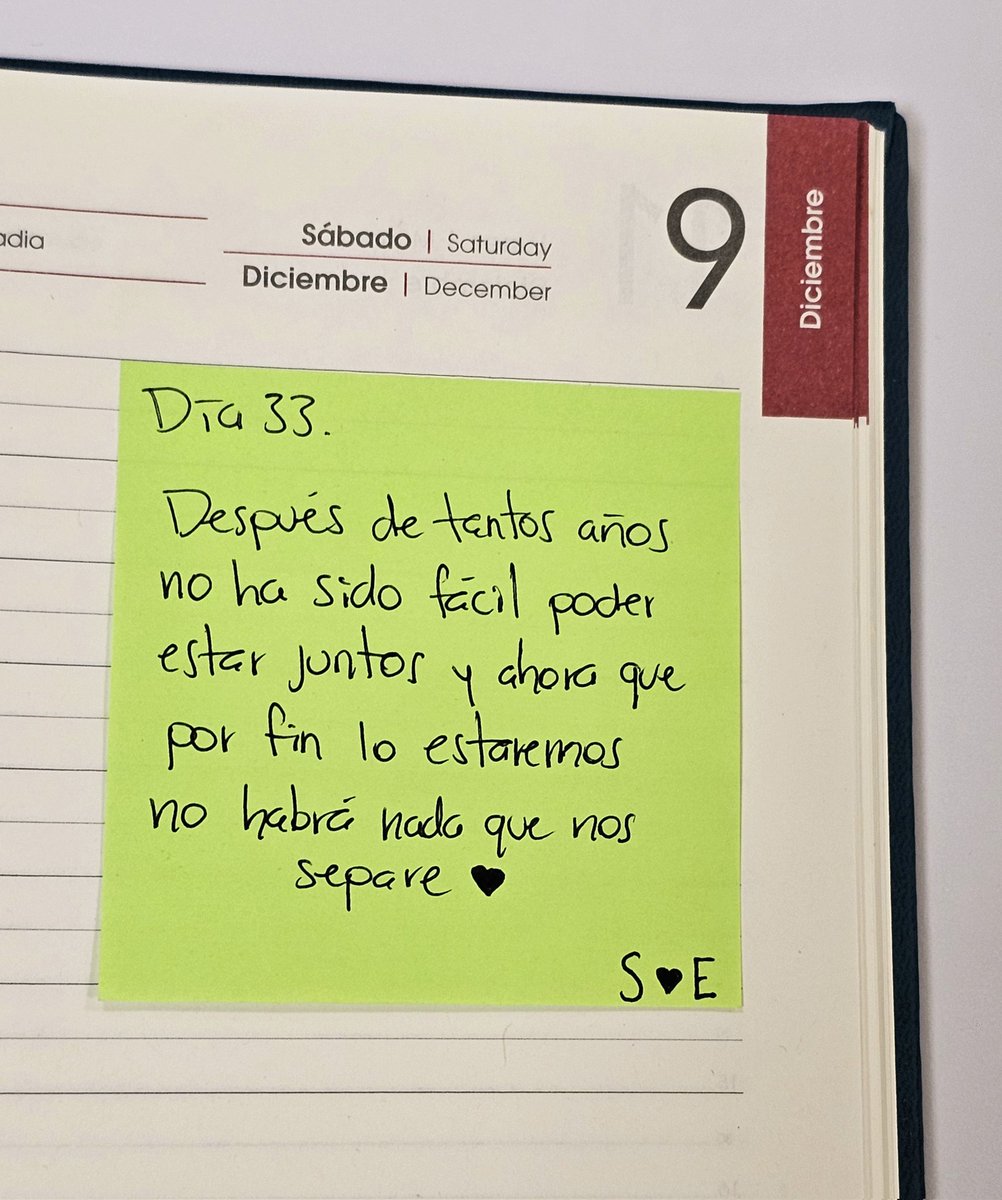 Sábado | Saturday
Diciembre | December
9
Diciembre
Día 33.
Después de tantos años
no ha sido fácil poder
estar juntos y ahora que
por fin lo estaremos
no habrá nada que nos
separe ♥
S ♥ E